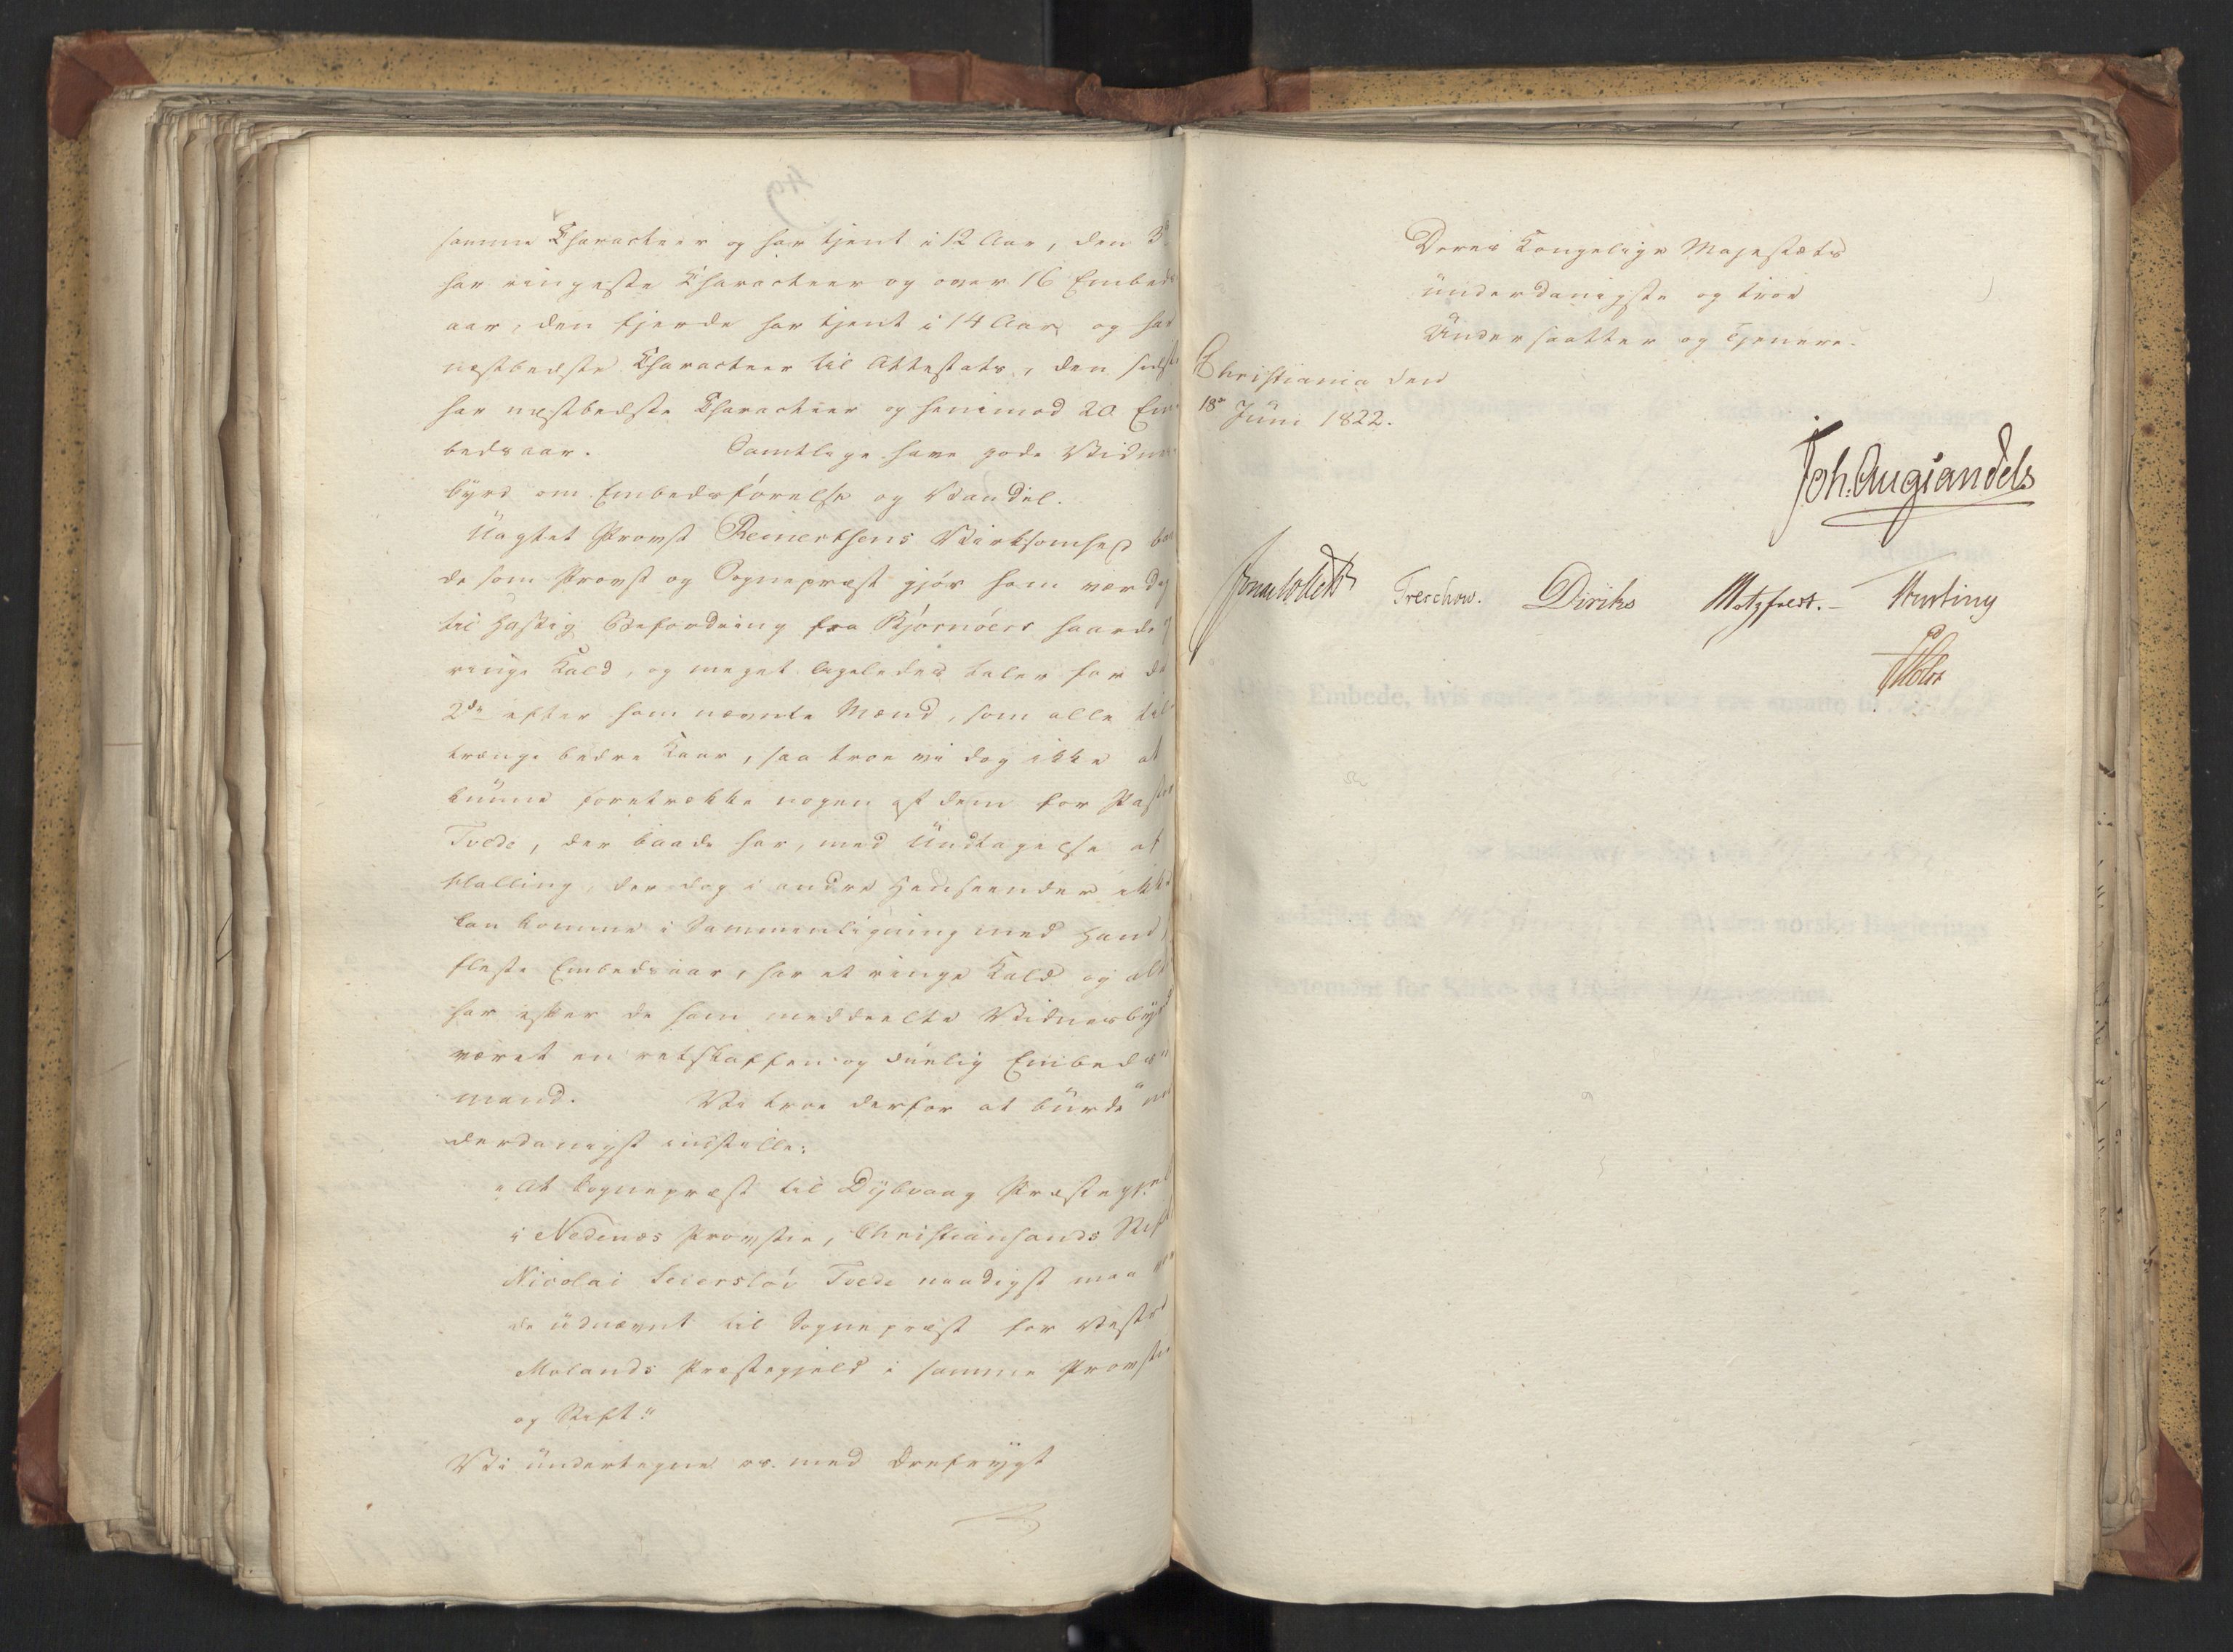 samme Characteer og har tjent i 12 Aar, den 3die
har ringeste Characteer og over 16 Embeds
aar, den fjerde har tjent i 14 Aar og har
næstbedste Characteer til Attestats, den sidste
har næstbedste Characteer og henimod 20 Em-
bedsaar. Samtlige have gode Vidnes-
byrd om Embedsførelse og Vandel.
Uagtet Provst Reinertsens Virksomhed baa
de som Provst og Sognepræst gjør ham værdig
til hastig Befordring fra Bjørnøers haarde og
ringe Kald, og meget ligeledes taler for de
2de efter ham nævnte Mænd, som alle til-
trænge bedre Kaar, saa troe vi dog ikke at
kunne foretrække nogen af dem for Pastor
Tvede, der baade har, med Undtagelse af
Halling, der dog i andre Henseender ikke
kan komme i Sammenligning med ham,
fleste Embedsaar, har et ringe Kald og altid
har efter de ham meddeelte Vidnesbyrd
været en retskaffen og duelig Embeds-
mand. Vi troe derfor at burde un
derdanigst indstille:
"At Sognepræst til Dybvaag Præstegjeld
i Nedenæs Provstie, Christiansands Stift
Nicolai Seiersløv Tvede naadigst maa vor
de udnævnt til Sognepræst for Vestre
Molands Præstegjeld i samme Provstie
og Stift."
Vi undertegne os med Ærefrygt
Deres Kongelige Majestæts
underdanigste og troe
Undersaatter og Tjenere.
Christiania den
18de Juni 1822.
Joh. Aug Sandels
Jonas Collett Treschow. Diriks Motzfeldt. Krefting
Holst